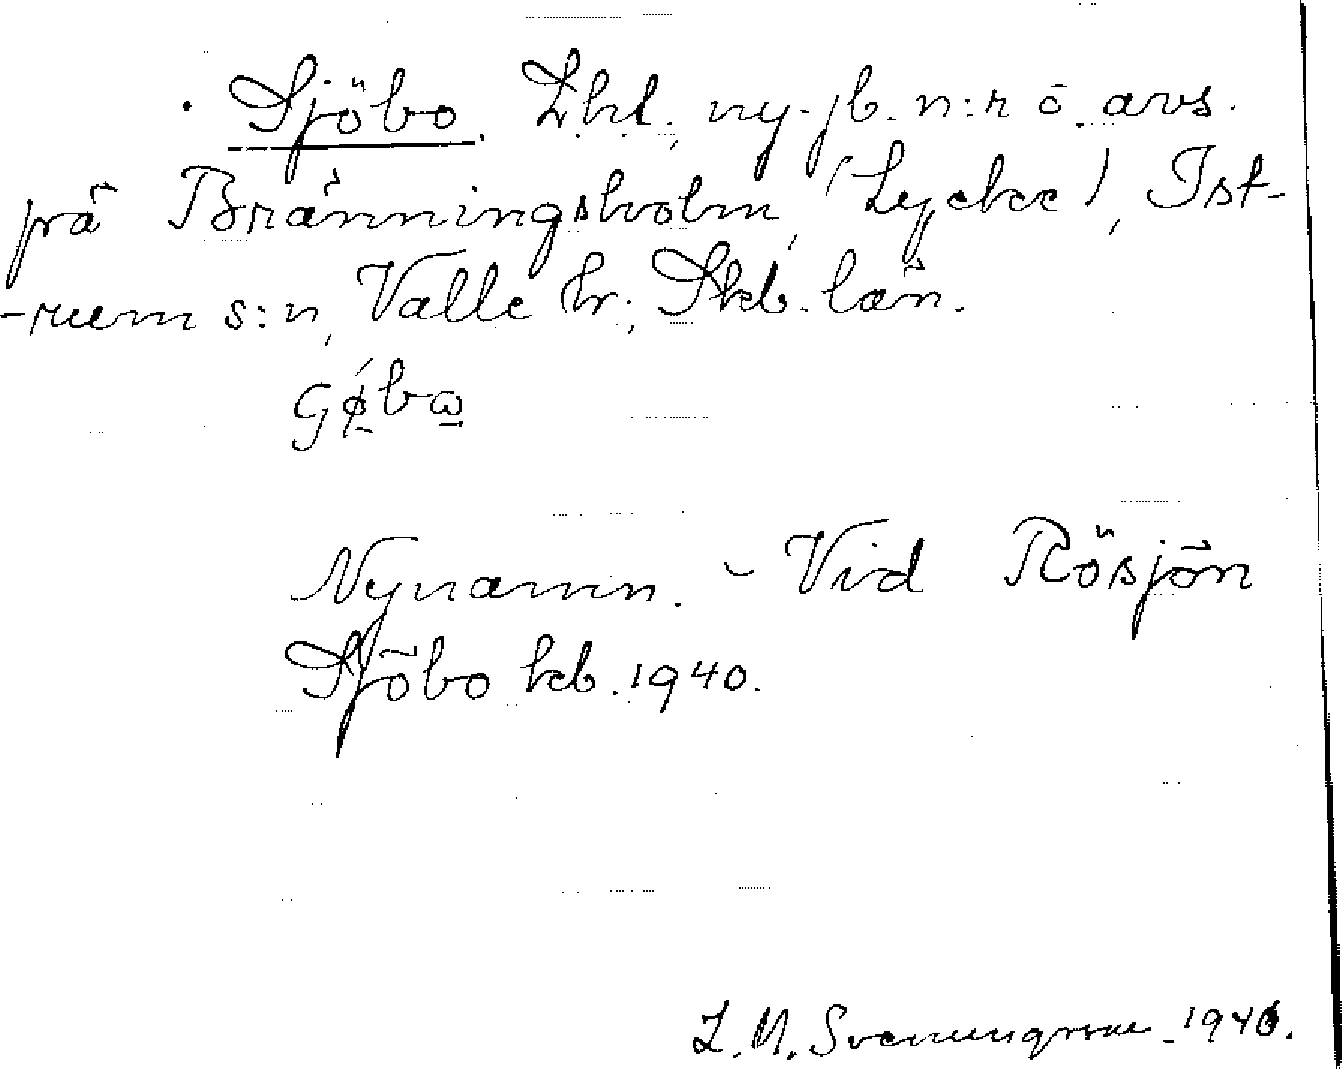 Sjöbo. Lht., ny-jb. n:r o. avs.
på Bränningsholm, (Lycke), Ist-
-rum s:n, Valle hr, Skb. län.
Nynamn. - Vid Rösjön
Sjöbo kb. 1940.
L. M. Svenungsson. 1940.